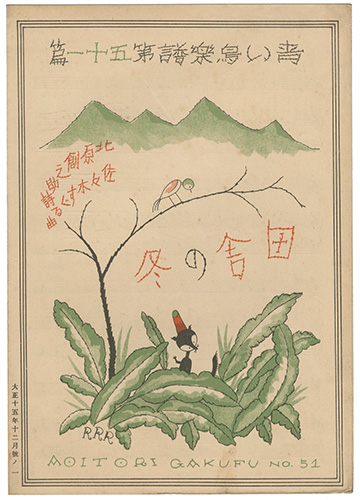 青い鳥樂譜第五十一篇
北原創之助詩
佐々木すぐる曲
田舎の冬
RRR
AOITORI GAKUFU NO. 51
大正十五年十二月號ノ一